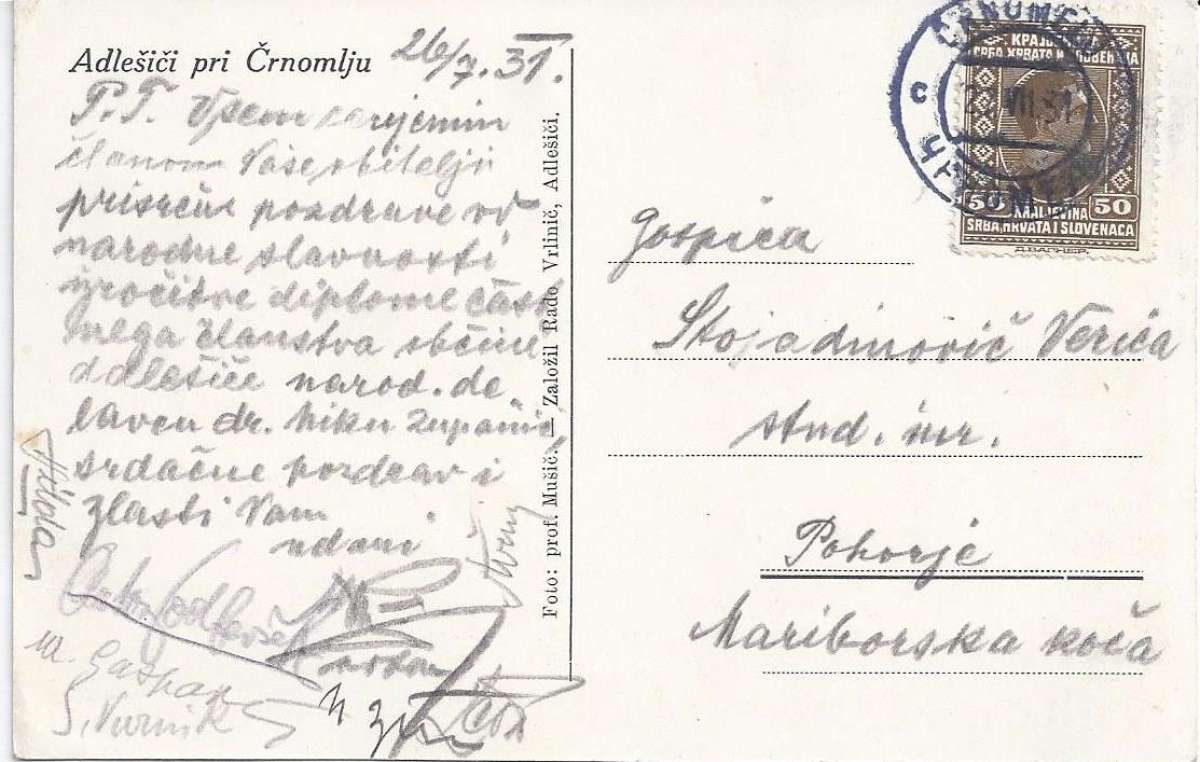 Adlešiči pri Črnomlju 26/7. 31.
P. T. Vsem cenjenim
članom Vaše obitelji
prisrčne pozdrave od
narodne slavnosti
izročitve diplome čast
nega članstva občine
Adlešiče narod. de
lavcu dr. Niku Zupaniču,
srdačne pozdrave i
zlasti Vam
udani
S. Vurnik
Foto: prof. Mušič. — Založil Rado Vrlinič, Adlešiči.
КРАЉЕВИНА
СРБА, ХРВАТА И СЛОВЕНАЦА
50 50
KRALJEVINA
SRBA, HRVATA I SLOVENACA
VII 31
c
Gospića
Stojadinovič Verića
stud. iur.
Pohorje
Mariborska koča